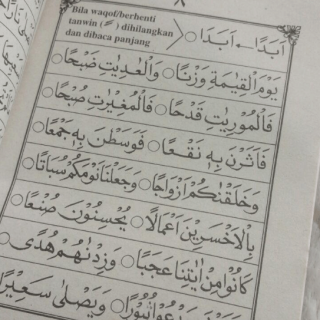 ٨
Bila waqof/berhenti
tanwin (ـًـ) dihilangkan
dan dibaca panjang
اَبَدًا ← اَبَدَا
يَوْمَ الْقِيٰمَةِ وَزْنًا ○ وَالْعٰدِيٰتِ ضَبْحًا ○
فَالْمُوْرِيٰتِ قَدْحًا ○ فَالْمُغِيْرٰتِ صُبْحًا ○
فَاَثَرْنَ بِهٖ نَقْعًا ○ فَوَسَطْنَ بِهٖ جَمْعًا ○
وَخَلَقْنٰكُمْ اَزْوَاجًا ○ وَجَعَلْنَا نَوْمَكُمْ سُبَاتًا ○
بِالْاَخْسَرِيْنَ اَعْمَالًا ○ يُحْسِنُوْنَ صُنْعًا ○
كَانُوْا مِنْ اٰيٰتِنَا عَجَبًا ○ وَزِدْنٰهُمْ هُدًى ○
ثُبُوْرًا ○ وَيَصْلٰى سَعِيْرًا